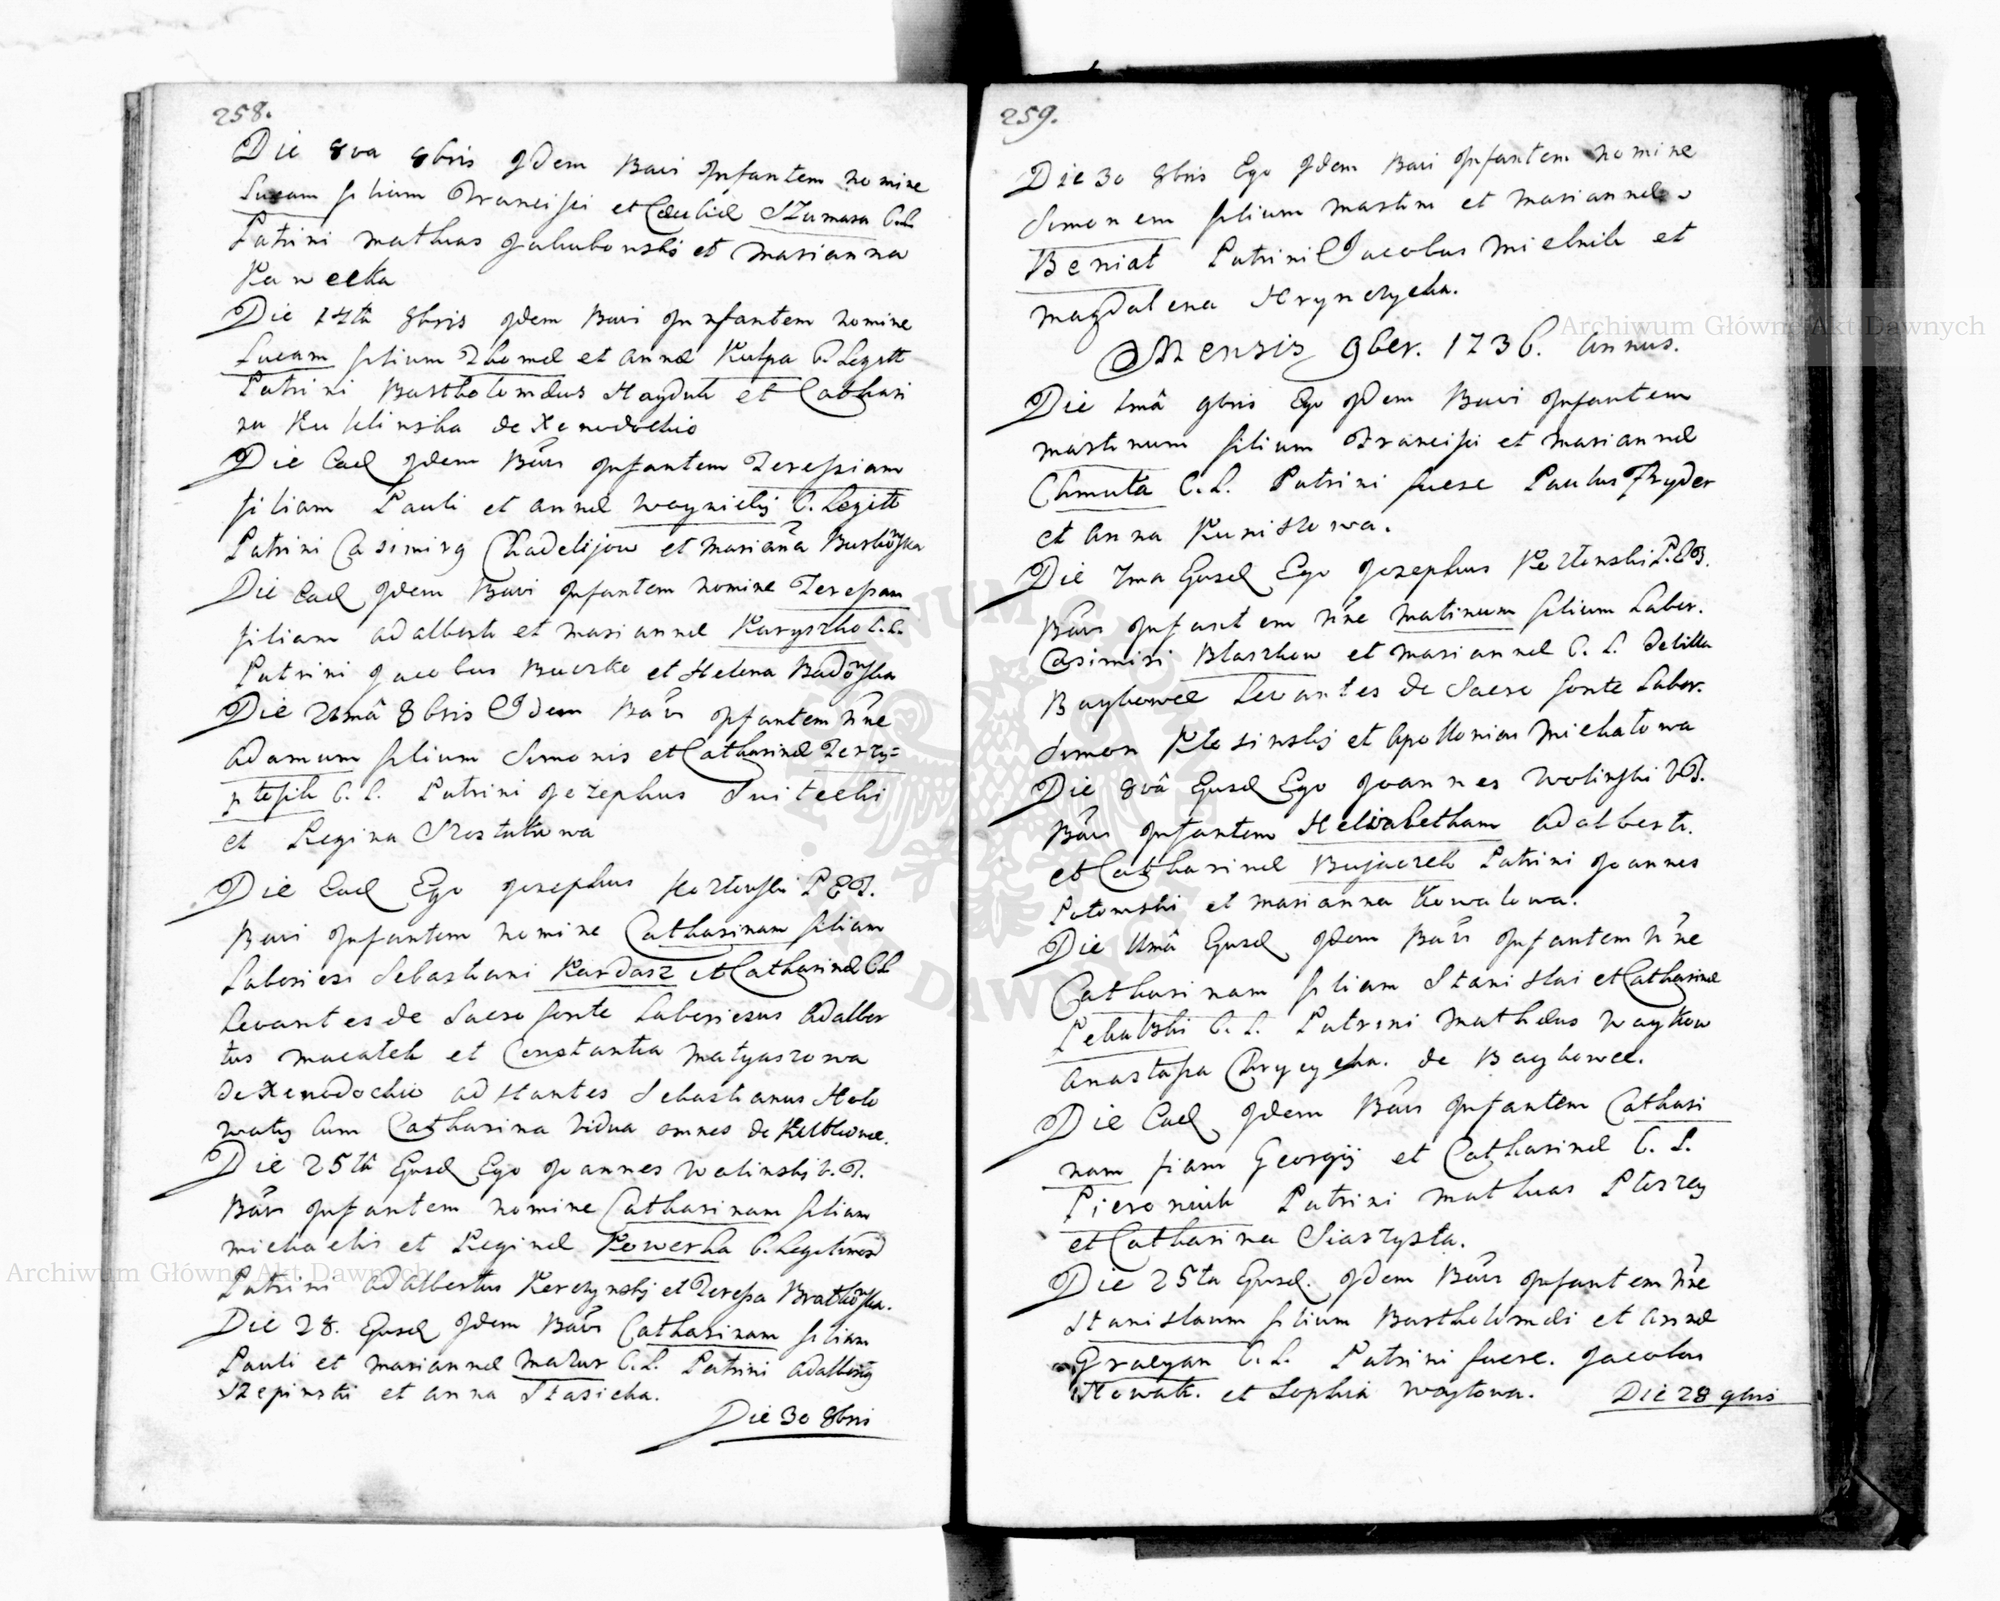 258.
Die 8va 8bris Idem Bavi Infantem nomine
Lucam filium Francisci et Cæciliæ Szumara C. L.
Patrini Mathias Jakubowski et Marianna
Kawecka
Die 14ta 8bris Idem Bavi Infantem nomine
Lucam filium Thomæ et Annæ Kulpa C. Legitt
Patrini Bartholomæus Hayduk et Cathari
na Kuklinska de Xenodochio
Die Ead Idem Bavi Infantem Teressiam
filiam Pauli et Annæ Woynickij C. Legitt
Patrini Casimirg Chadelijow et Mariana Burkowska
Die Ead Idem Bavi Infantem nomine Teressam
filiam Adalberti et Mariannæ Karyszko C. L.
Patrini Jacobus Buczko et Helena Badowska
Die 21mâ 8bris Idem Bavi Infantem nne
Adamum filium Simonis et Catharinæ Terzy=
C. L. Patrini Jozephus Switecki
et Regina
Die Ead Ego Josephus P. E. B.
Bavi Infantem nomine Catharinam filiam
Laboriosi Sebastiani Kardasz et Catharinæ C L
Levantes de Sacro fonte Laboriosus Adalber
tus Macalek et Constantia Matyaszowa
de Xenodochio adstantes Sebastianus Holo
waty cum Catharina Vidua omnes de
Die 25tâ Ejusd Ego Joannes Wolinskj V. B.
Bavi Infantem nomine Catharinam filiam
Michaelis et Reginæ Kowerka C. Legitimor
Patrini Adalbertus Kerczynskj et Teressa Bratkowska.
Die 28. Ejusd Idem Bavi Catharinam filiam
Pauli et Mariannæ Mazur C. L. Patrini Adalbertg
Szepinski et Anna Stasicha.
Die 30 8bris
259.
Die 30 8bris Ego Idem Bavi Infantem nomine
Simonem filium Martini et Mariannæ
Beniat Patrini Jacobus Mielnik et
Magdalena Hrynczycha.
Mensis 9ber. 1736. Annus.
Die 1mâ 9bris Ego Idem Bavi Infantem
Martinum filium Francisci et Mariannæ
Chmuta C. L. Patrini fuere Paulus Fryder
et Anna Kuniszowa.
Die 7ma Ejusd Ego Josephus P. E. B.
Bavi Infantem nne Matinum filium Labor.
Casimiri Blaszkow et Mariannæ C. L. de Villa
Baykowce Levantes de Sacro fonte Labor.
Simon Klosinskj et Apollonia Michalowa
Die 8vâ Ejusd Ego Joannes Wolinski V. B.
Bavi Infantem Helizabetham Adalberti
et Catharinæ Bujaczek Patrini Joannes
Potomski et Marianna Kowalowa.
Die 11mâ Ejusd Idem Bavi Infantem nne
Catharinam filiam Stanislai et Catharinæ
Pekalski C. L. Patrini Mathæus Woytkow
Anastasia de Baykowce.
Die Ead Idem Bavi Infantem Cathari
nam fiam Georgij et Catharinæ C. L.
Pieroniuk Patrini Mathias
et Catharina Siaszysta.
Die 25ta Ejusd. Idem Bavi Infantem nne
Stanislaum filium Bartholomæi et Annæ
Gracyan C. L. Patrini fuere. Jacobus
Nowak. et Sophia Woytowa.
Die 28 9bris
Archiwum Główne Akt Dawnych
Archiwum Główne Akt Dawnych